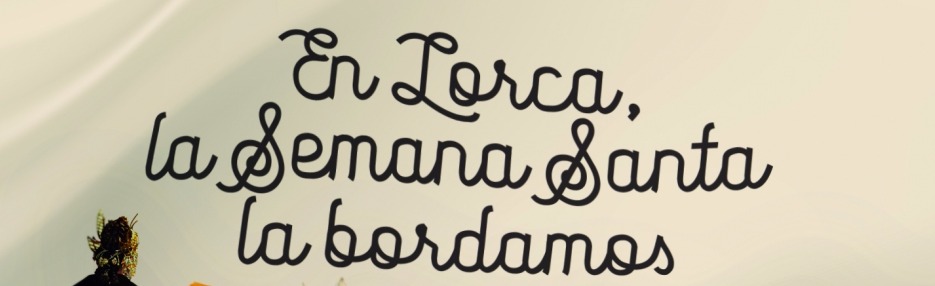 En Lorca,
la Semana Santa
la bordamos